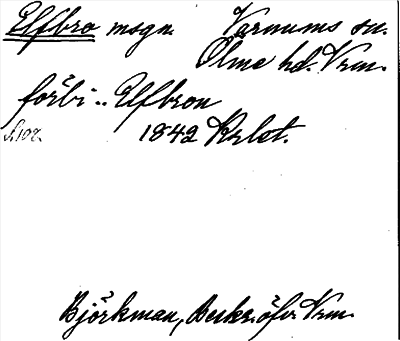 Elfbro msgn. Varnums sn.
Ölme hd. Vrm.
förbi .. Elfbron
s. 102. 1842 Krlet.
Björkman, Beskr. öfv. Vrm.